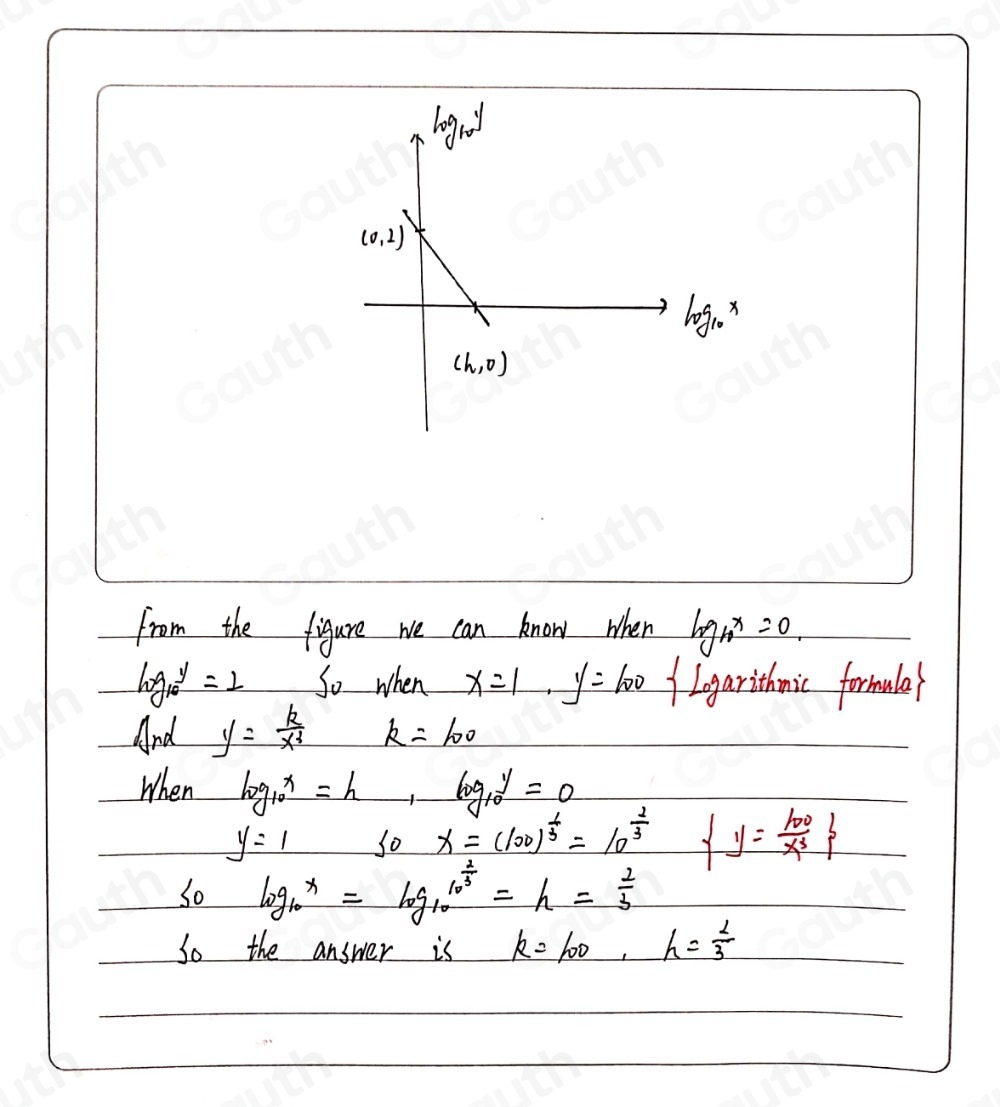 log₁₀y
(0,2)
log₁₀x
(h,0)
From the figure we can know when log₁₀x = 0.
log₁₀y = 2 So when x=1, y=100 {Logarithmic formula}
And y = k/x³ k = 100
When log₁₀x = h, log₁₀y = 0
y=1 so x = (100)^(1/3) = 10^(2/3) {y = 100/x³}
So log₁₀x = log₁₀10^(2/3) = h = 2/3
So the answer is k=100, h=2/3
Gauth